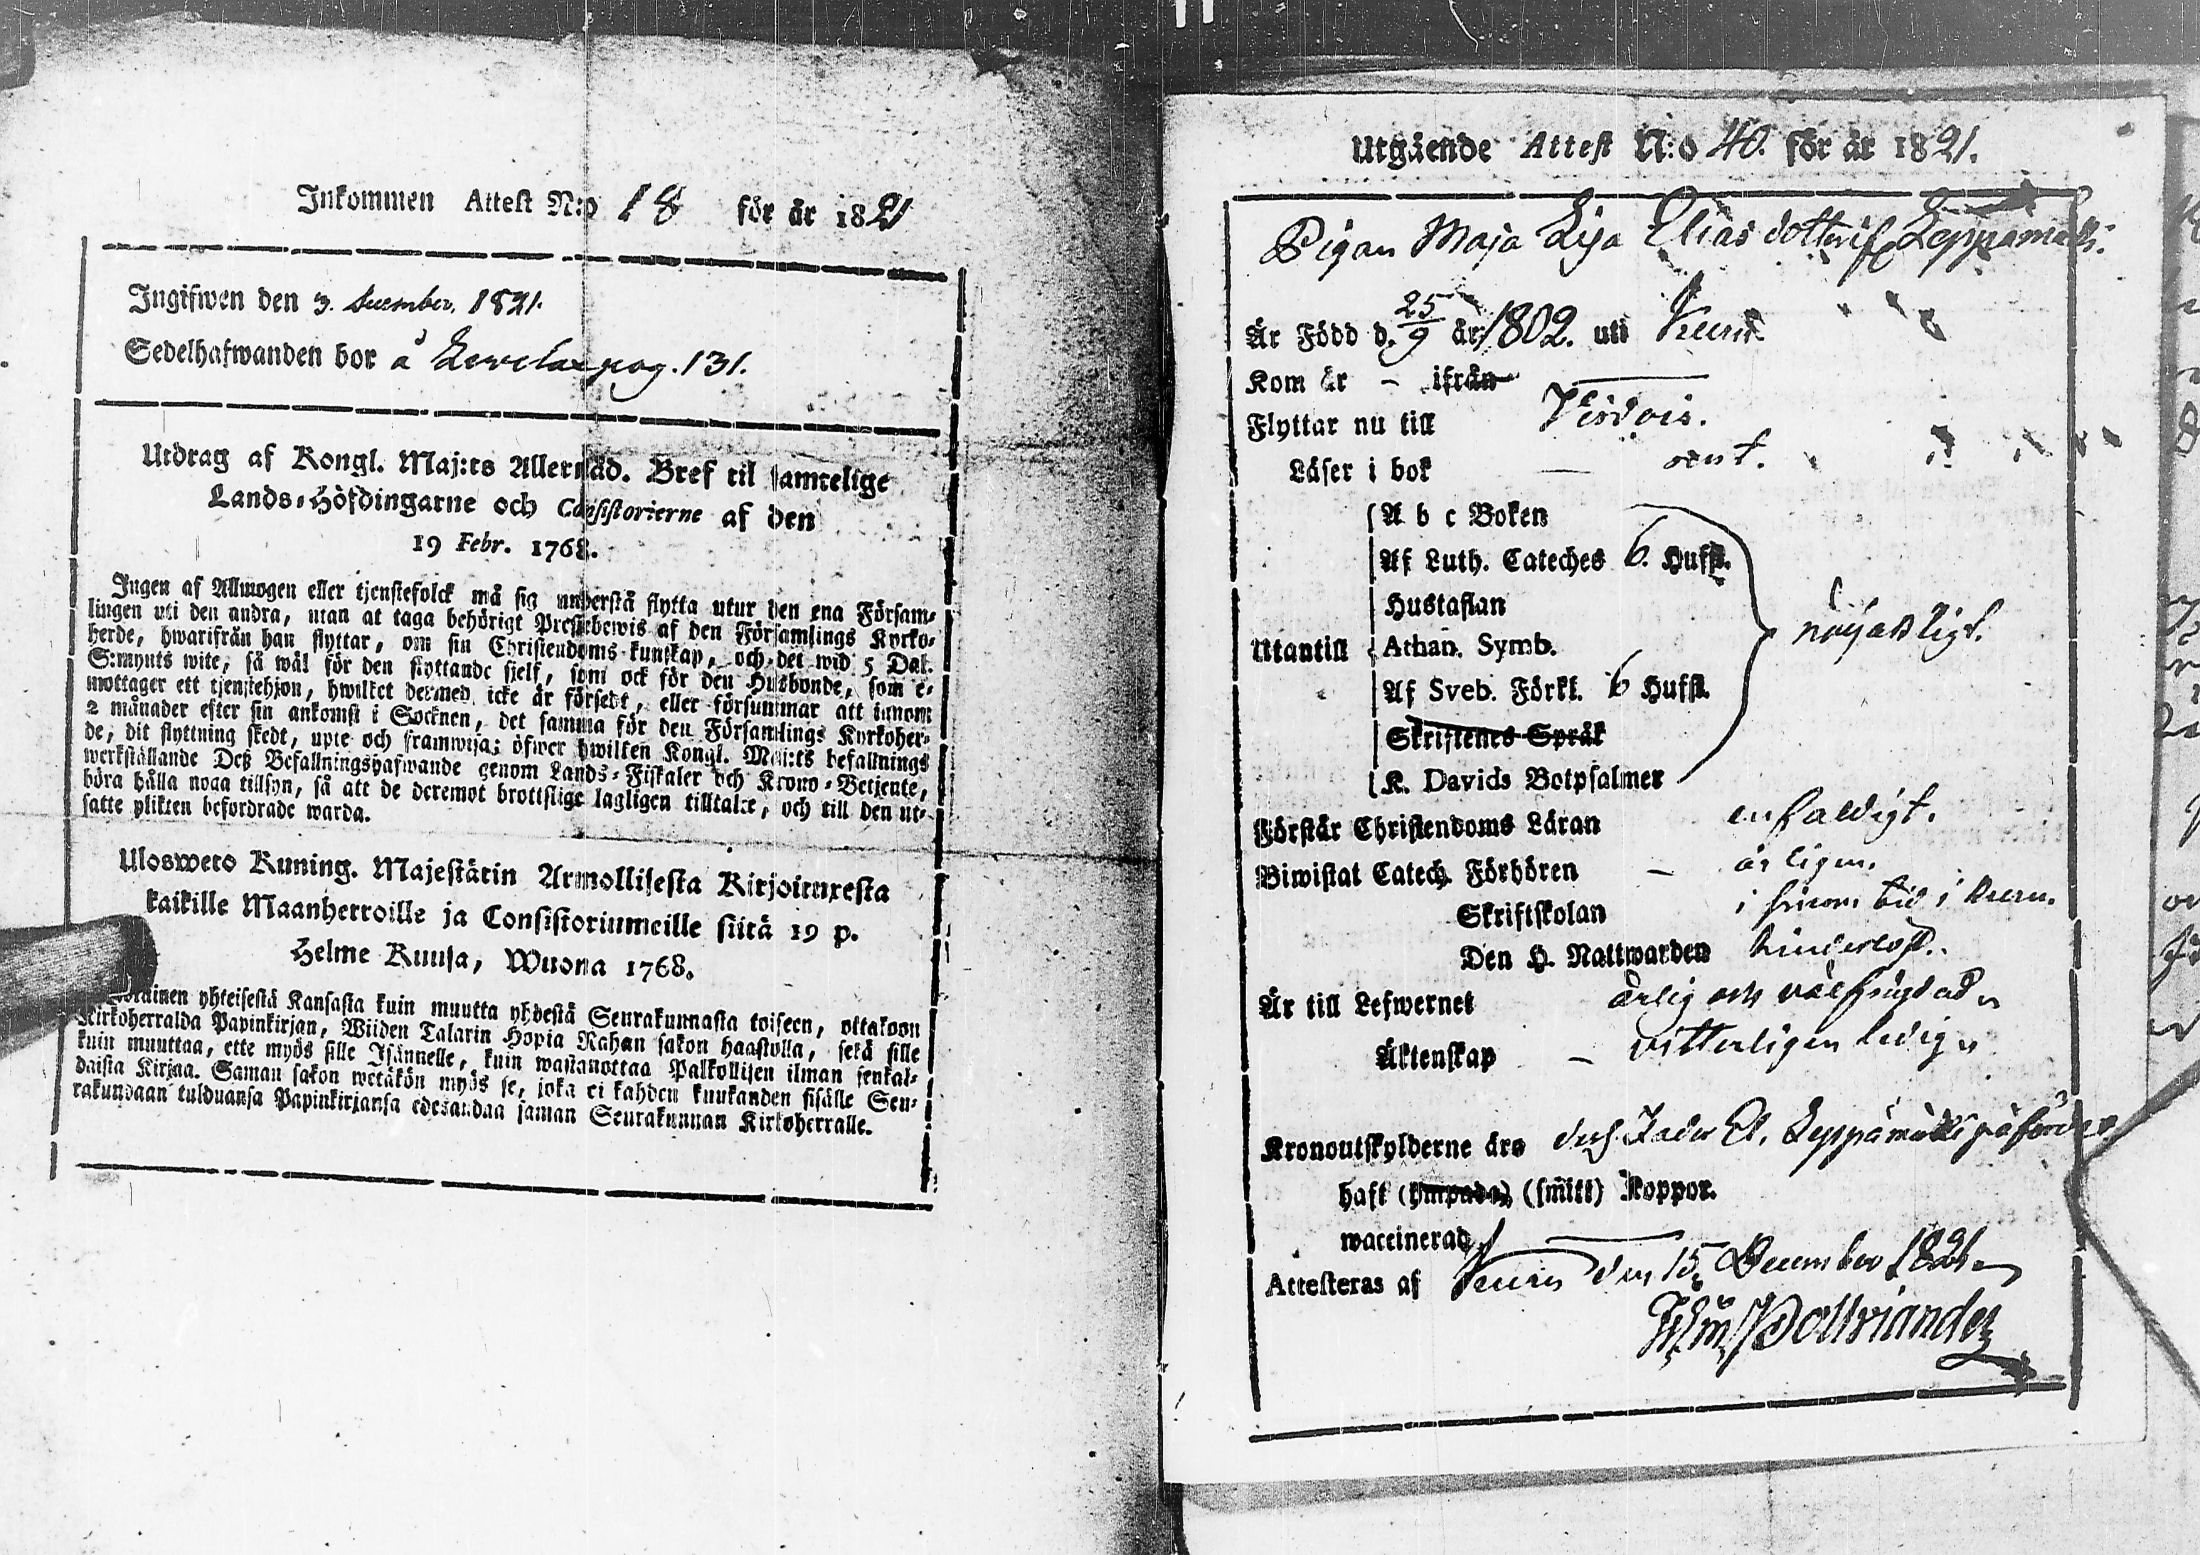 Inkommen Attest N:o 18 för år 1821
Ingifwen den 3. december. 1821.
Sedelhafwanden bor å pag. 131.
Utdrag af Kongl. Maj:ts Allernåd. Bref til samtelige
Lands-Höfdingarne och Consistorierne af den
19 Febr. 1768.
Ingen af Allmogen eller tjenstefolck må sig understå flytta utur den ena Försam-
lingen uti den andra, utan at taga behörigt Prestebewis af den Församlings Kyrko-
herde, hwarifrån han flyttar, om sin Christendoms kunskap, och det wid 5 Dal.
S:mynts wite, så wäl för den flyttande sjelf, som ock för den Husbonde, som e-
mottager ett tjenstehjon, hwilket dermed icke är försedt, eller försummar att innom
2 månader efter sin ankomst i Socknen, det samma för den Församlings Kyrkoher-
de, dit flyttning skedt, upte och framwisa; öfwer hwilken Kongl. Maj:ts befallnings
werkställande Deß Befallningshafwande genom Lands-Fiskaler och Krono-Betjente,
böra hålla noga tillsyn, så att de deremot brottslige lagligen tilltalte, och till den ut-
satte plikten befordrade warda.
Ulosweto Kuning. Majestätin Armollisesta Kirjoituxesta
kaikille Maanherroille ja Consistoriumeille siitä 19 p.
Helme Kuusa, Wuona 1768.
yhteisestä Kansasta kuin muutta yhdestä Seurakunnasta toiseen, ottakoon
Kirkoherralda Papinkirjan, Wiiden Talarin Hopia Rahan sakon haastolla, sekä sille
kuin muuttaa, ette myös sille Isännelle, kuin wastanottaa Palkollisen ilman senkal-
daista Kirjaa. Saman sakon wetäkön myös se, joka ei kahden kuukanden sisälle Seu-
rakundaan tulduansa Papinkirjansa edesandaa saman Seurakunnan Kirkoherralle.
Utgående Attest N:o 40. för år 1821.
Pigan Maja Lisa Elias dotter if. Leppämäki.
Är Född d. 25/9 år 1802. uti Kum
Kom år - ifrån
Flyttar nu till Virdois.
Läser i bok - rent.
Utantill
A b c Boken
Af Luth. Cateches 6. Hufst.
Hustaflan
Athan. Symb. nöjaktigt.
Af Sveb. Förkl. 6 Hufst.
Skriftenes Språk
K. Davids Botpsalmer
Förstår Christendoms Läran enfaldigt.
Biwistat Catech. Förhören - årligen.
Skriftskolan i sinom tid i Kum.
Den H. Nattwarden hinderlöst.
Är till Lefwernet ärlig och välfrägdad
Äktenskap - vitterligen ledig
Kronoutskylderne äro dess Fader El. Leppämäki påförde
haft (ympade) (smitt) Koppor.
waccinerad
Attesteras af Kum den 15 December 1821